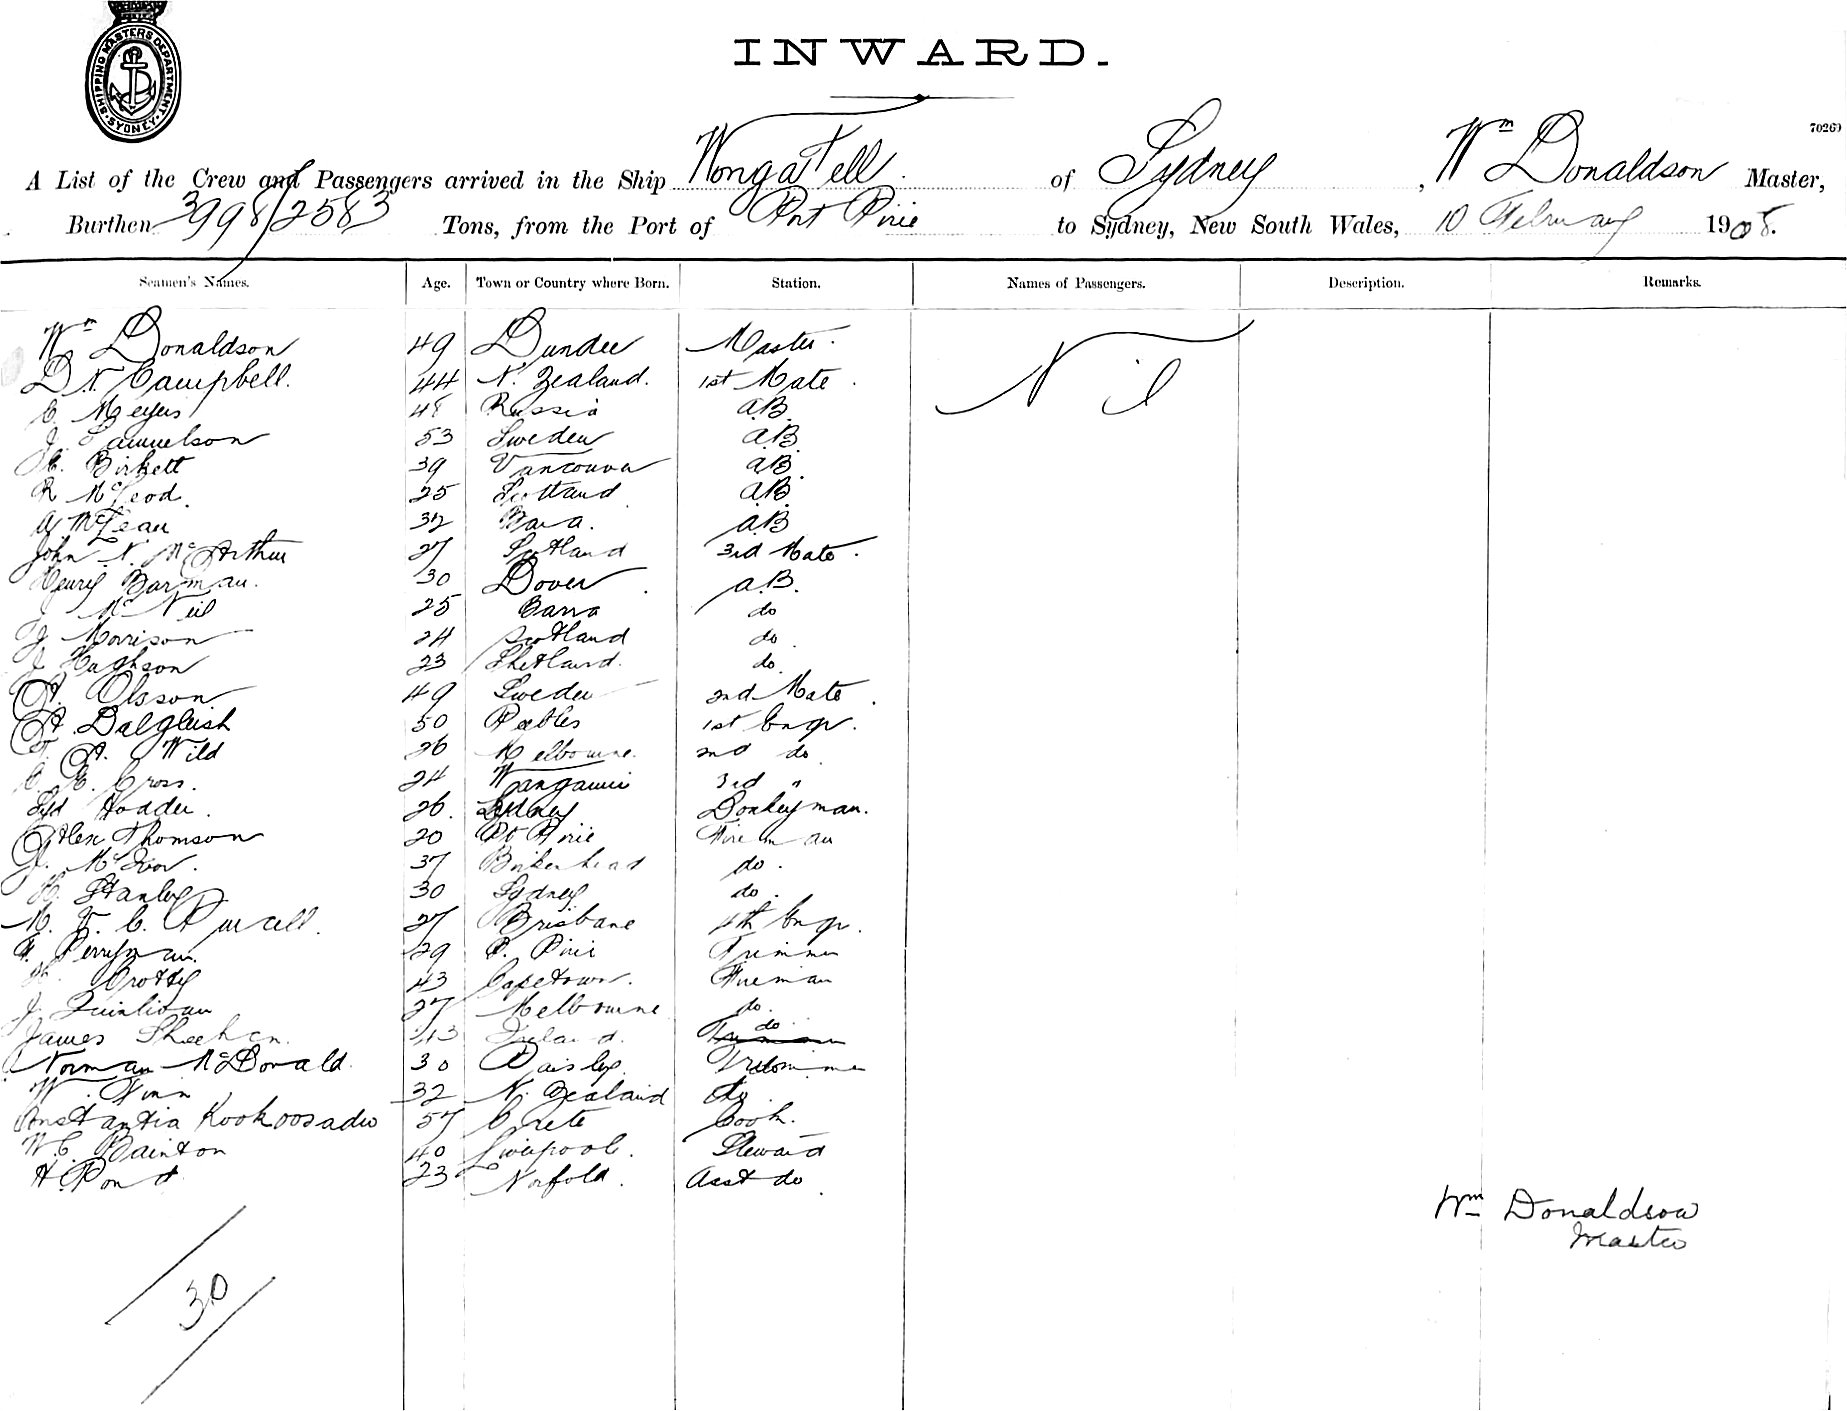 SHIPPING MASTERS DEPARTMENT
SYDNEY
INWARD.
70269
A List of the Crew and Passengers arrived in the Ship Wonga Fell of Sydney, Wm Donaldson Master,
Burthen 3998/2583 Tons, from the Port of Port Pirie to Sydney, New South Wales, 10 February 1908.
Seamen's Names. Age. Town or Country where Born. Station. Names of Passengers. Description. Remarks.
Wm Donaldson 49 Dundee Master. Nil
D. N. Campbell. 44 N. Zealand. 1st Mate.
C. Meyers 48 Russia A.B.
J. Samuelson 53 Sweden A.B.
Birkett 39 Vancouver A.B.
R McLeod. 25 Scotland A.B.
A McLean 32 Bara. A.B.
John N. McArthur 27 Scotland 3rd Mate.
Henry Barman. 30 Dover. A.B.
J McNeil 25 Barra do
J Morrison 24 Scotland do
J Hughson 23 Shetland. do
A. Olsson 49 Sweden 2nd Mate.
A. Dalgleish 50 Peebles 1st Engr.
F. A. Wild 26 Melbourne. 2nd do
C. E. Cross. 24 Wanganui 3rd "
Syd Hodder. 26. Sydney Donkeyman.
Alex Thomson 20 Pt Pirie Fireman
J. McIvor. 37 Birkenhead do.
H. Stanley 30 Sydney do.
M. F. C. Purcell. 27 Brisbane 4th Engr.
Perryman. 29 P. Pirie Trimmer
H. Crotty 43 Capetown. Fireman
J Quinlivan 27 Melbourne do.
James Sheehan. 43 Ireland. do.
Norman McDonald. 30 Paisley. Trimmer
W. Finn 32 N. Zealand do
Constantia Kookoosadis 57 Crete Cook.
W. C. Bainton 40 Liverpool. Steward
H. Pond 23 Norfolk. Asst do.
Wm Donaldson
Master
30